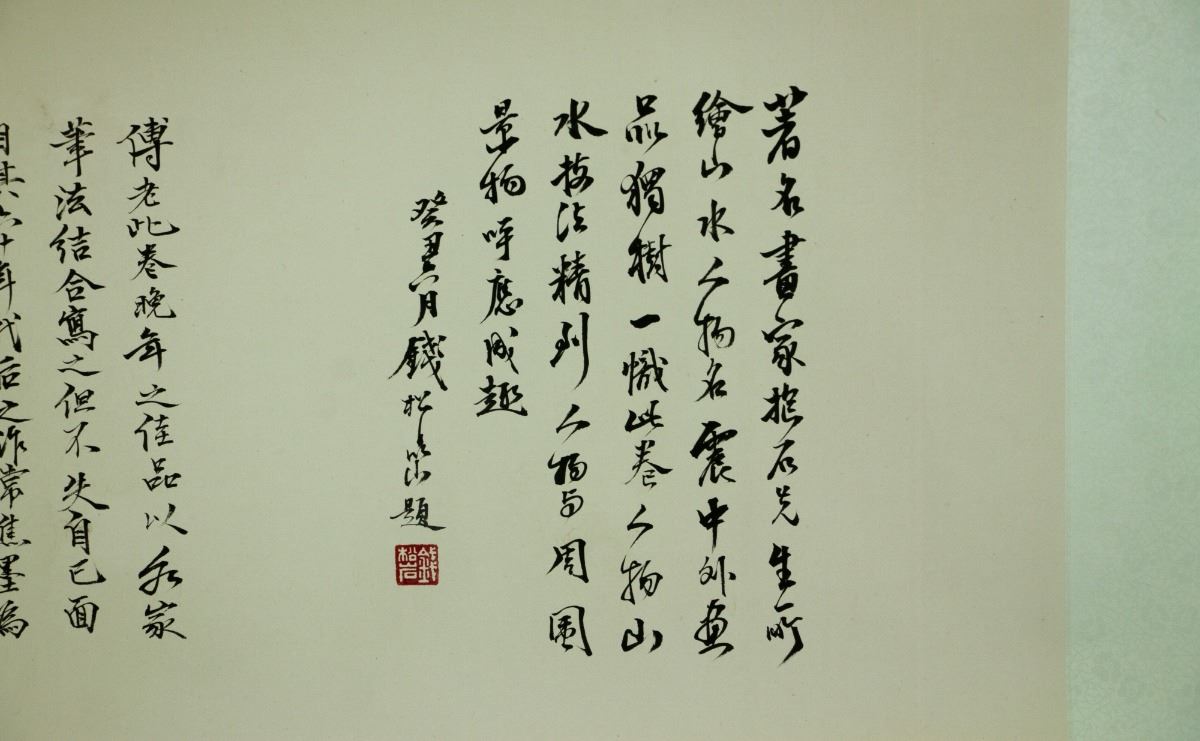 著名畫家抱石先生所
繪山水人物名震中外畫
品獨樹一幟此卷人物山
水技法精到人物与周圍
景物呼應成趣
癸丑六月錢松喦題
錢松喦
傅老此卷晚年之佳品以
筆法結合寫之但不失自己面
自其六十年代后之作常焦墨為